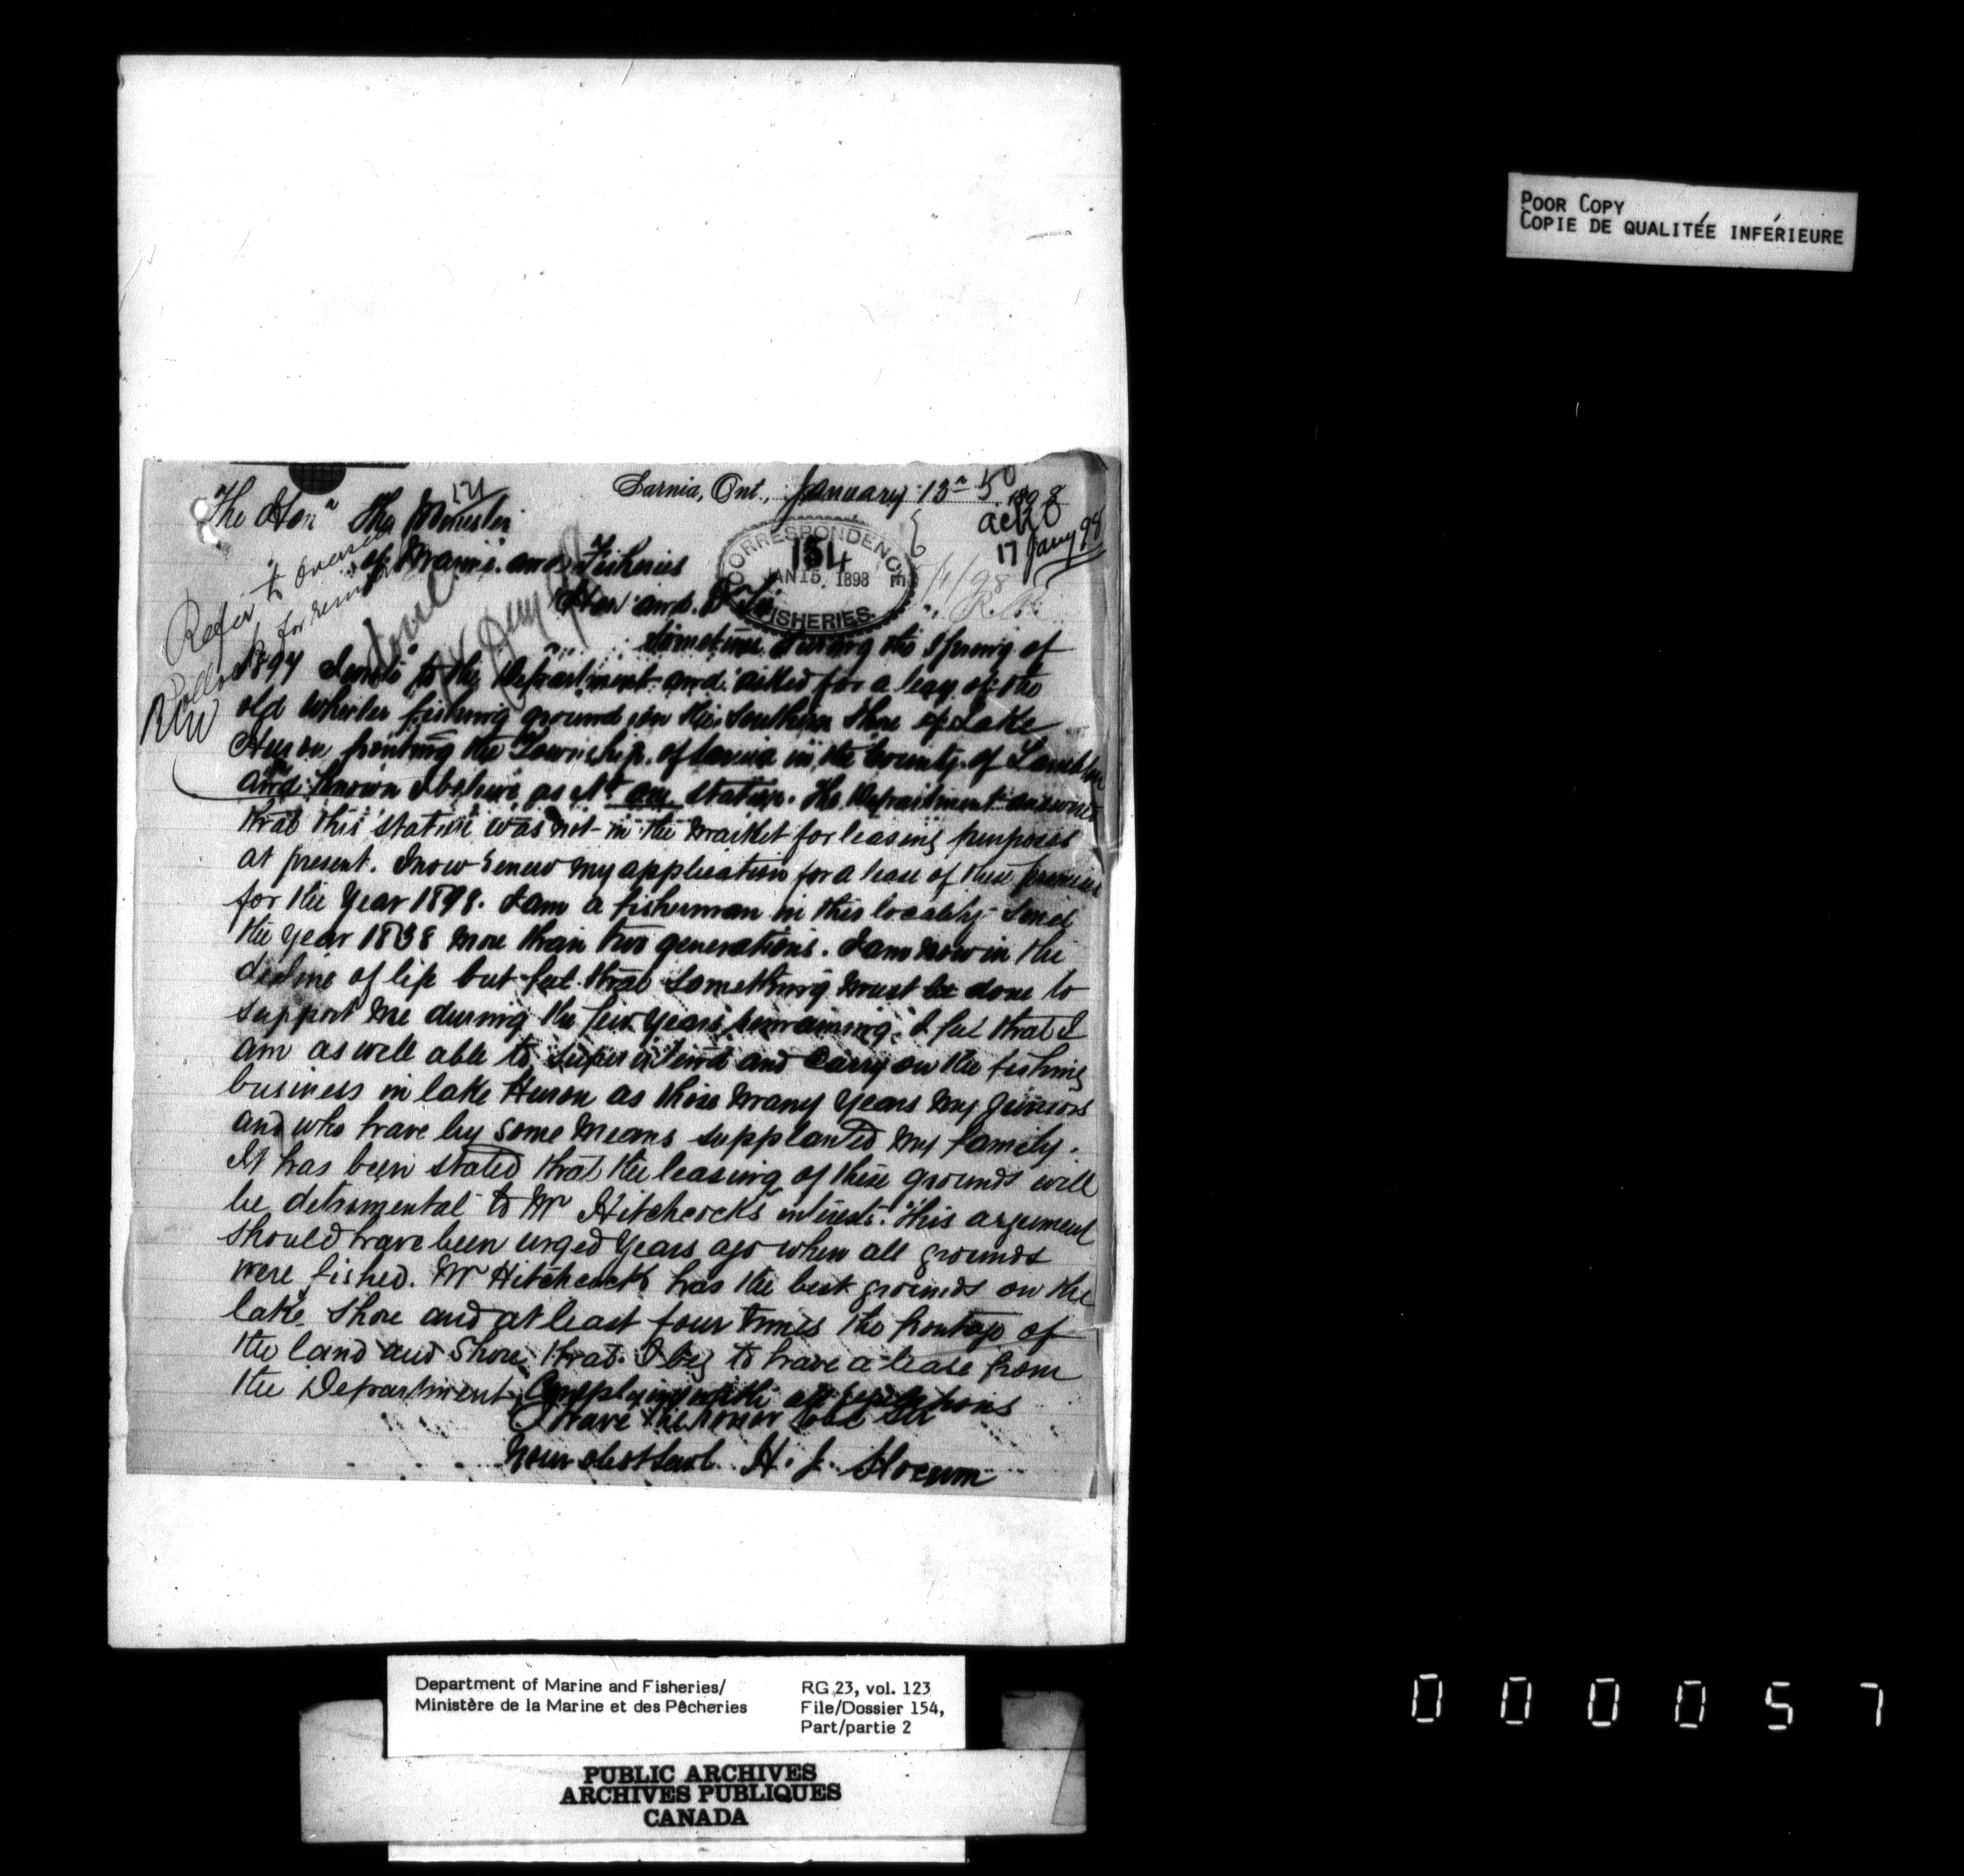 POOR COPY
COPIE DE QUALITÉE INFÉRIEURE
Sarnia, Ont., January 13th 1898
121
The Honl The Minister
of Marine and Fisheries
ackd
17 Jany 98
CORRESPONDENCE
154
JAN 15 1898
FISHERIES
Refer to Overseer
for
done
RNW
Hon and D Sir
Sometime during the Spring of
1897 I wrote to the Department and asked for a leas of the
old Wheeler fishing grounds on the Southern Shore of Lake
Huron fronting the Township of Sarnia in the County of Lambton
and known I believe as No one station. The Department answered
that this station was not in the market for leasing purposes
at present. I now renew my application for a lease of these premises
for the Year 1898. I am a fisherman in this locality Since
the year 1838 more than two generations. I am now in the
decline of life but feel that something must be done to
support me during the few years remaining. I feel that I
am as well able to superintend and carry on the fishing
business in lake Huron as those many years my juniors
and who have by some means supplanted my family.
It has been stated that the leasing of these grounds will
be detrimental to Mr Hitchcock's interests. This argument
should have been urged years ago when all grounds
were fished. Mr Hitchcock has the best grounds on the
lake shore and at least four times the frontage of
the land and shore that I beg to have a lease from
the Department, Complying with all regulations
I have the honor to be Sir
Your obdt Servt H. J. Slocum
Department of Marine and Fisheries/
Ministère de la Marine et des Pêcheries
RG 23, vol. 123
File/Dossier 154,
Part/partie 2
PUBLIC ARCHIVES
ARCHIVES PUBLIQUES
CANADA
000057